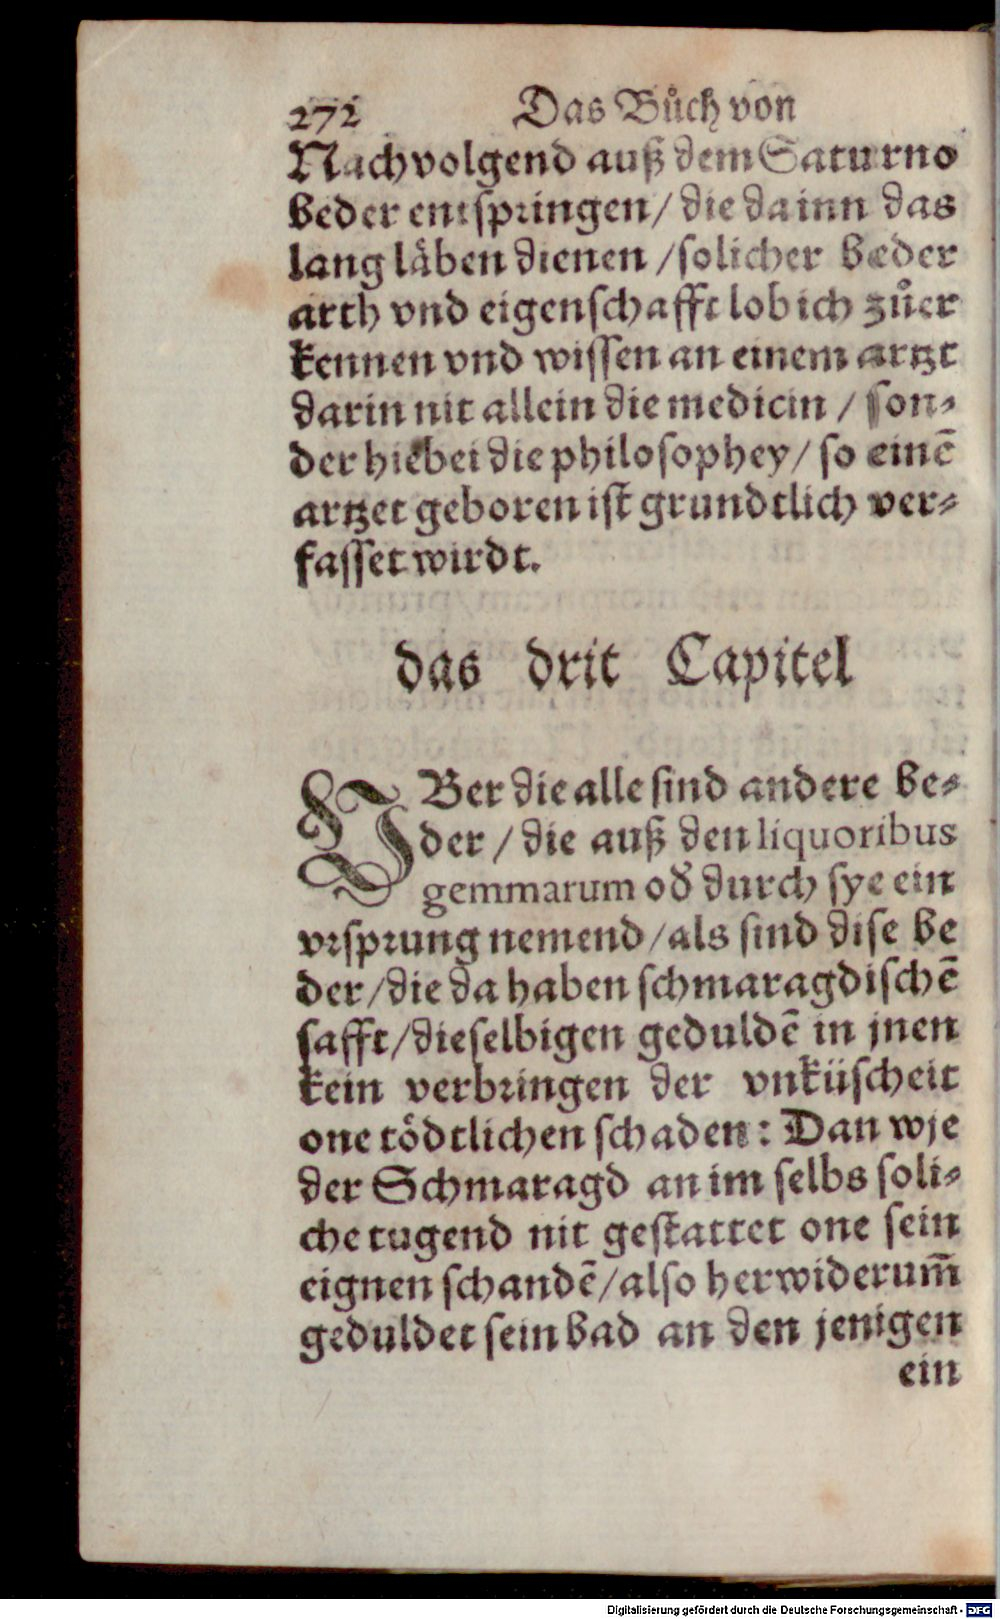 272 Das Bůch von
Nachvolgend auß dem Saturno
beder entspringen/ die da inn das
lang läben dienen /solicher beder
arth vnd eigenschafft lob ich zůer
kennen vnd wissen an einem artzt
darin nit allein die medicin / son⸗
der hiebei die philosophey/ so einē
artzet geboren ist grundtlich ver⸗
fasset wirdt.
das drit Capitel
VBer die alle sind andere be⸗
der / die auß den liquoribus
gemmarum od̕ durch sye ein
vrsprung nemend /als sind dise be
der/die da haben schmaragdischē
safft/dieselbigen geduldē in jnen
kein verbringen der vnküscheit
one tödtlichen schaden: Dan wje
der Schmaragd an im selbs soli⸗
che tugend nit gestattet one sein
eignen schandē/also herwiderum̄
geduldet sein bad an den jenigen
ein
Digitalisierung gefördert durch die Deutsche Forschungsgemeinschaft - DFG